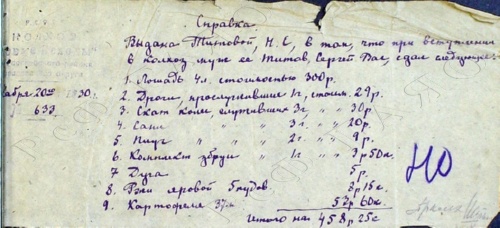 Справка
Выдана Титовой, Н. С, в том, что при вступлении
в колхоз муж ее Титов, Сергей Вас, сдал следующее:
1. Лошадь 4 л. стоимостью 300 р.
абря 20го 1930 г.
633
2. Дроги, прослужившие 1 г, стоим. 29 р.
3. Скат колес, служивших 3 г „ „ 30 р
4. Сани „ „ 3 г. „ „ 20 р.
5. Плуг „ „ 2 г. „ „ 9 р.
6. Комплект збруи „ 1 г „ „ 3 р 50 к.
7 Дуга 5 р.
8. Ржи яровой 5 пудов. 8 р 15 к.
9. Картофеля 53 р 60 к.
Итого на 458 р 25 с